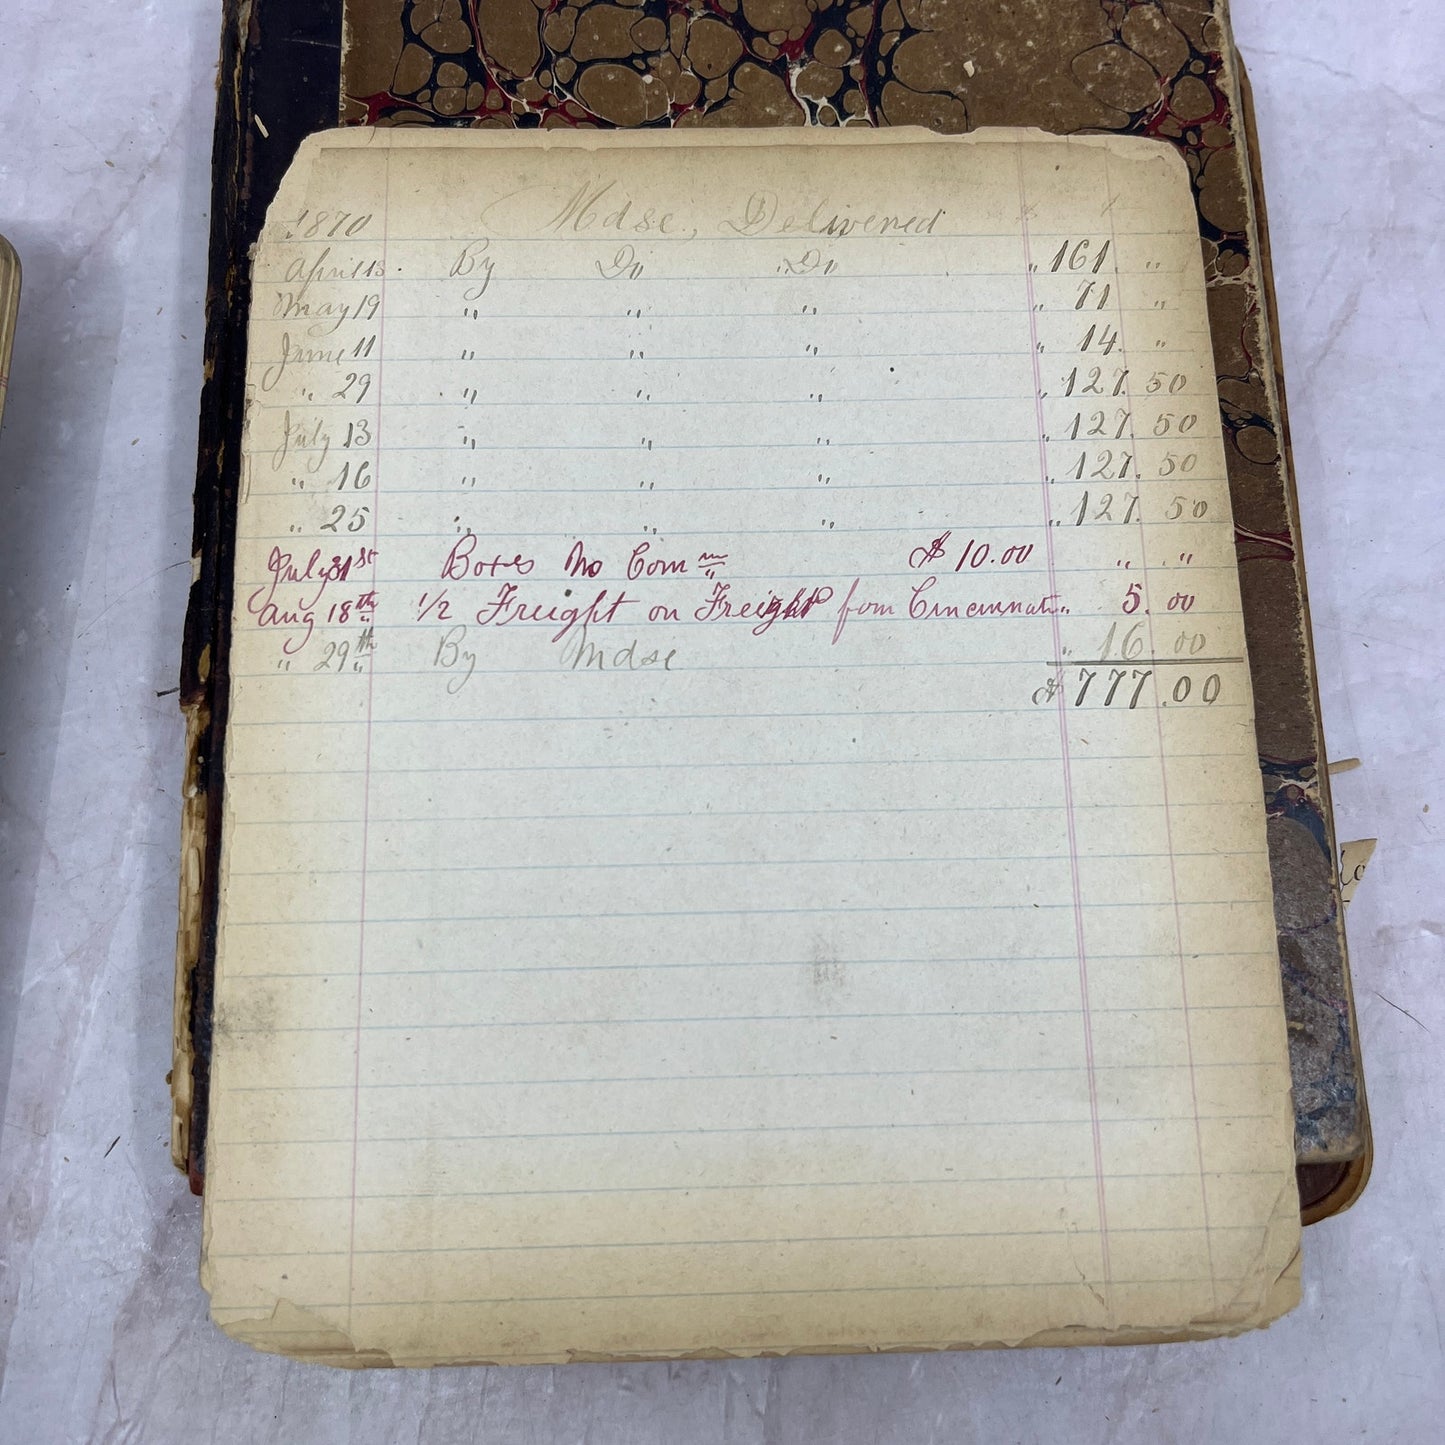 1870 Mdse, Delivered
April 13. By Do Do " 161. "
May 19 " " " " 71 "
June 11 " " " " 14. "
" 29 " " " " 127. 50
July 13 " " " " 127. 50
" 16 " " " " 127. 50
" 25 " " " " 127. 50
July 31st Boxes No Comm $10.00 " "
Aug 18th 1/2 Freight on Freight from Cincinnati " 5. 00
" 29th By Mdse " 16. 00
$777.00